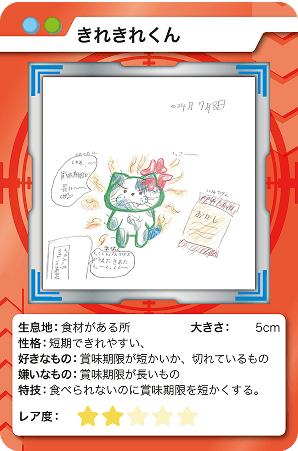 きれきれくん
7月8日
賞味期限が
長い〜
おかし
生息地: 食材がある所 大きさ: 5cm
性格: 短期できれやすい、
好きなもの: 賞味期限が短かいか、切れているもの
嫌いなもの: 賞味期限が長いもの
特技: 食べられないのに賞味期限を短かくする。
レア度: